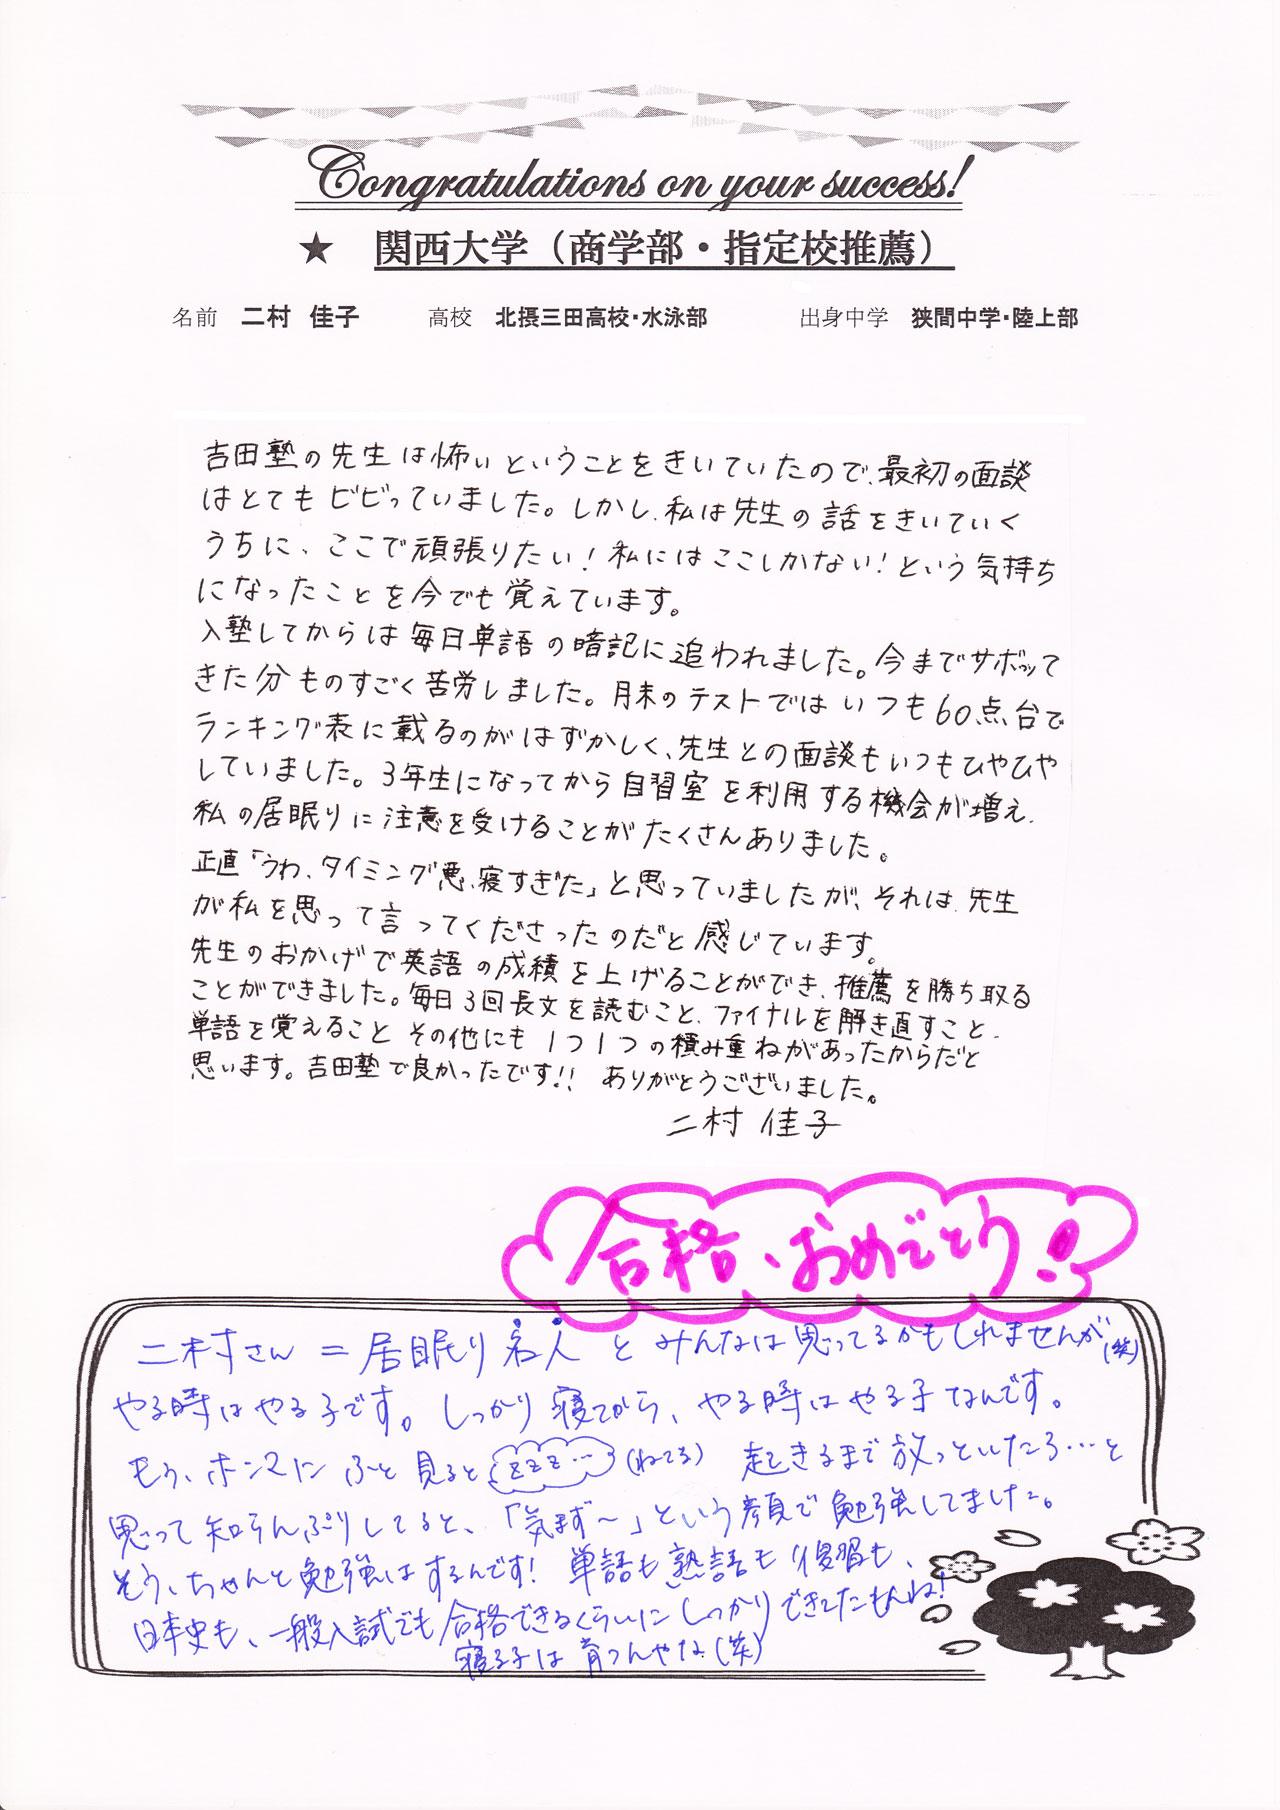 Congratulations on your success!
★ 関西大学（商学部・指定校推薦）
名前 二村 佳子 高校 北摂三田高校・水泳部 出身中学 狭間中学・陸上部
吉田塾の先生は怖いということをきいていたので、最初の面談
はとてもビビっていました。しかし、私は先生の話をきいていく
うちに、ここで頑張りたい！私にはここしかない！という気持ち
になったことを今でも覚えています。
入塾してからは毎日単語の暗記に追われました。今までサボって
きた分ものすごく苦労しました。月末のテストではいつも60点台で
ランキング表に載るのがはずかしく、先生との面談もいつもひやひや
していました。3年生になってから自習室を利用する機会が増え、
私の居眠りに注意を受けることがたくさんありました。
正直「うわ、タイミング悪、寝すぎた」と思っていましたが、それは、先生
が私を思って言ってくださったのだと感じています。
先生のおかげで英語の成績を上げることができ、推薦を勝ち取る
ことができました。毎日3回長文を読むこと、ファイナルを解き直すこと、
単語を覚えること その他にも1つ1つの積み重ねがあったからだと
思います。吉田塾で良かったです!! ありがとうございました。
二村 佳子
合格、おめでとう！
二村さん＝居眠り名人 と みんなは思ってるかもしれませんが(笑)
やる時はやる子です。しっかり寝てから、やる時はやる子なんです。
もう、ホンマに ふと見ると zzz…(ねてる) 起きるまで放っといたろ…と
思って知らんぷりしてると、「気まず〜」という顔で勉強してました。
そう、ちゃんと勉強はするんです！単語も熟語も復習も、
日本史も、一般入試でも合格できるくらいにしっかりできてたもんね！
寝る子は育つんやな(笑)